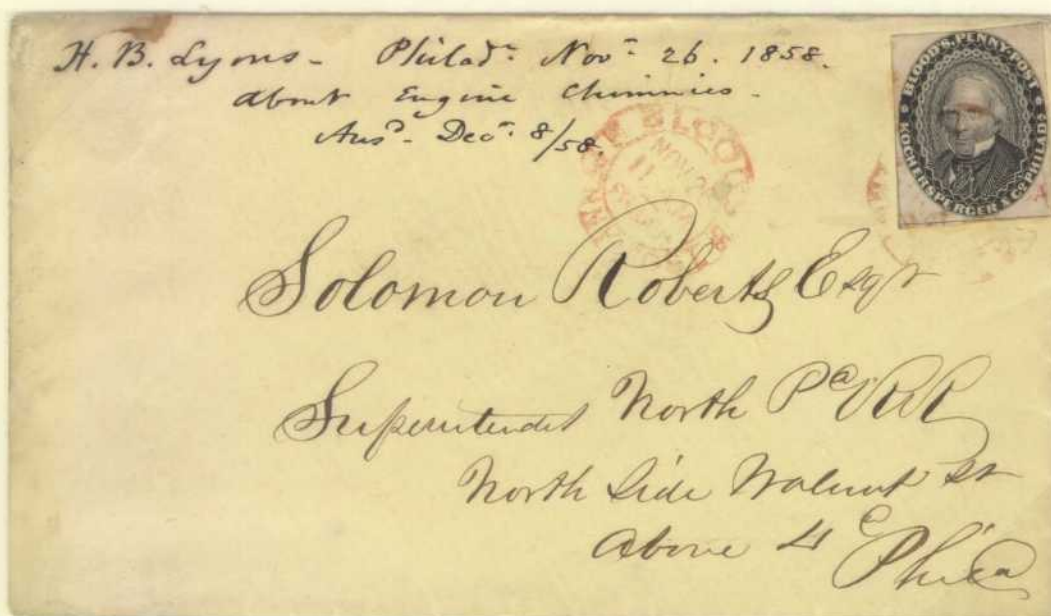 H. B. Lyons - Philada. Nov. 26. 1858.
About Engine Chimnies -
Ansd. Dec. 8/58.
BLOOD'S PENNY-POST
KOCHERSPERGER & CO. PHILADA.
NOV 26
11
Solomon Roberts Esqr
Superintendet North Pa RR
North Side Walnut St
Above 4
Phila